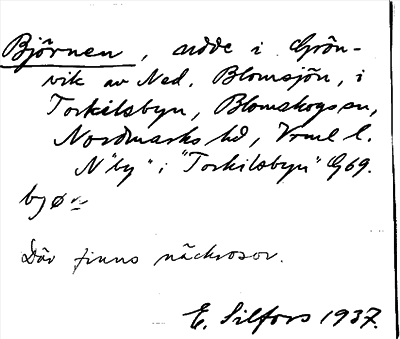 Björnen, udde i Grön-
vik av Ned. Blomsjön, i
Torkilsbyn, Blomskogs sn,
Nordmarks hd, Vrml l.
N "by" i "Torkilsbyn" G69.
Där finns näckrosor.
E. Silfors 1937.